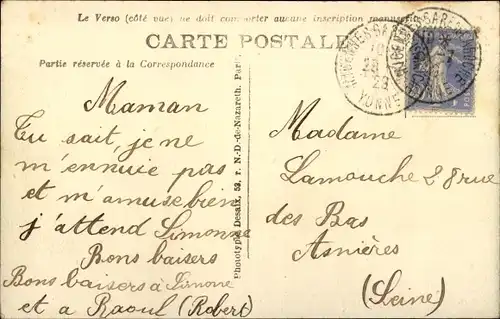 Le Verso (côté vue) ne doit comporter aucune inscription manuscrite
CARTE POSTALE
Partie réservée à la Correspondance
Maman
Tu sait, je ne
m'ennuie pas
et m'amuse bien
j'attend Simonne
Bons baisers
Bons baisers à Simone
et a Raoul (Robert)
Phototypie Desaix, 53, r. N.-D.-de-Nazareth, Paris
YONNE
Madame
Lamouche 28 rue
des Bas
Asnières
(Seine)